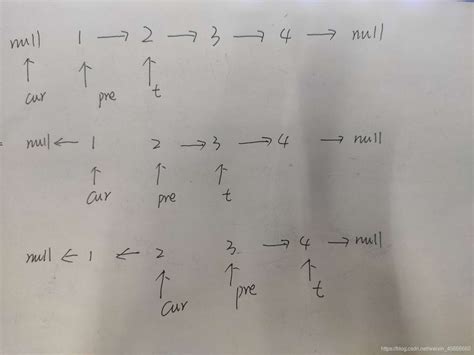 null 1 → 2 → 3 → 4 → null
↑ ↑ ↑
cur pre t
null ← 1 2 → 3 → 4 → null
↑ ↑ ↑
cur pre t
null ← 1 ← 2 3 → 4 → null
↑ ↑ ↑
cur pre t